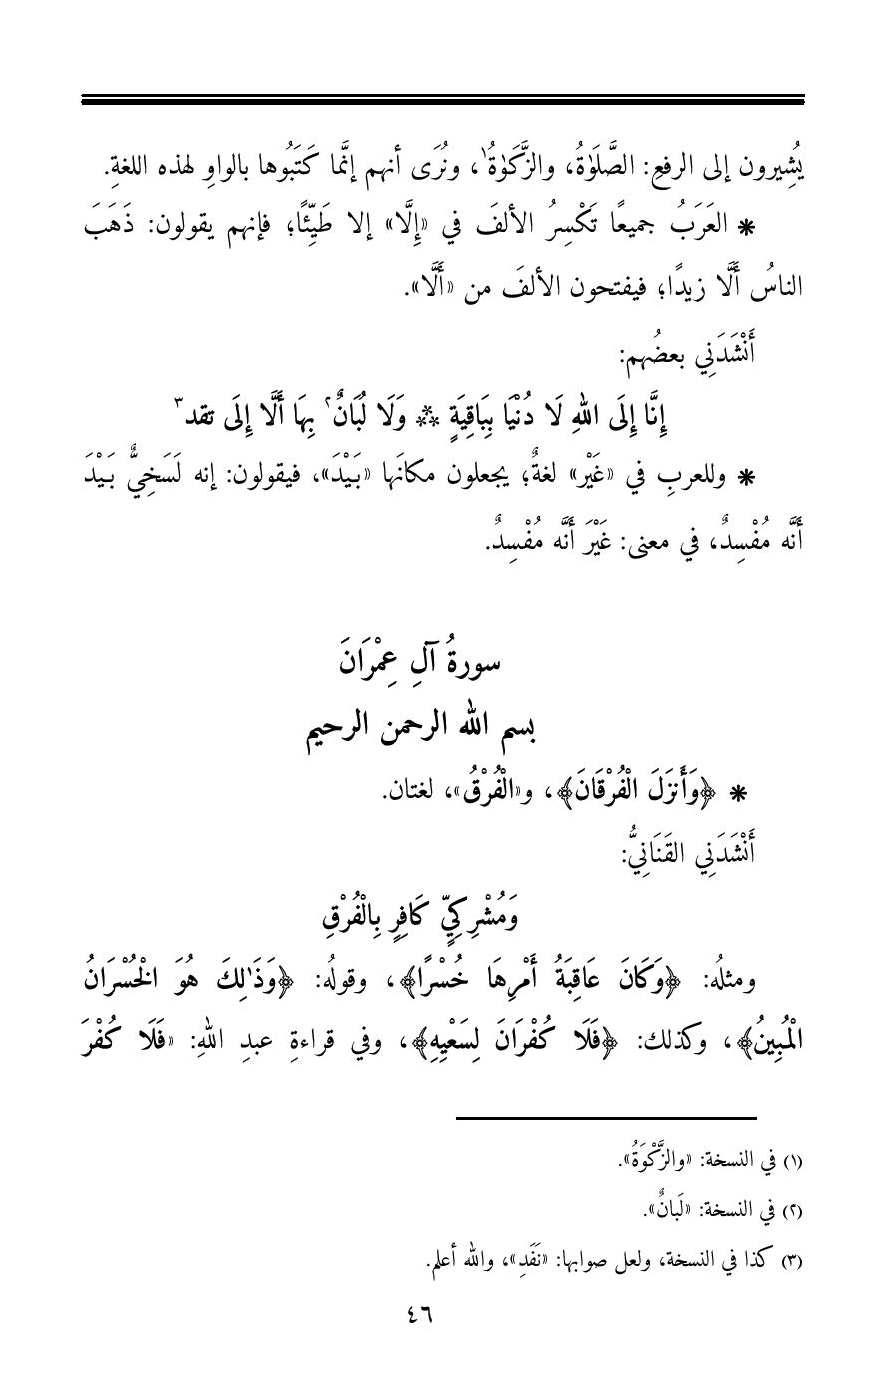 يُشِيرون إلى الرفعِ: الصَّلَوٰةُ، والزَّكَوٰةُ١، ونُرَى أنهم إنَّما كَتَبُوها بالواوِ لهذه اللغةِ.
* العَرَبُ جميعًا تَكْسِرُ الألفَ في «إِلَّا» إلا طَيِّئًا؛ فإنهم يقولون: ذَهَبَ
الناسُ أَلَّا زيدًا؛ فيفتحون الألفَ من «أَلَّا».
أَنْشَدَنِي بعضُهم:
إِنَّا إِلَى اللهِ لَا دُنْيَا بِبَاقِيَةٍ ** وَلَا لُبَانٌ٢ بِهَا أَلَّا إِلَى تقد٣
* وللعربِ في «غَيْر» لغةٌ؛ يجعلون مكانَها «بَيْدَ»، فيقولون: إنه لَسَخِيٌّ بَيْدَ
أَنَّه مُفْسِدٌ، في معنى: غَيْرَ أَنَّه مُفْسِدٌ.
سورةُ آلِ عِمْرَانَ
بسم الله الرحمن الرحيم
* ﴿وَأَنزَلَ الْفُرْقَانَ﴾، و«الْفُرْقُ»، لغتان.
أَنْشَدَنِي القَنَانِيُّ:
وَمُشْرِكِيٍّ كَافِرٍ بِالْفُرْقِ
ومثلُه: ﴿وَكَانَ عَاقِبَةُ أَمْرِهَا خُسْرًا﴾، وقولُه: ﴿وَذَٰلِكَ هُوَ الْخُسْرَانُ
الْمُبِينُ﴾، وكذلك: ﴿فَلَا كُفْرَانَ لِسَعْيِهِ﴾، وفي قراءةِ عبدِ اللهِ: «فَلَا كُفْرَ
(١) في النسخة: «والزَّكْوَةُ».
(٢) في النسخة: «لَبانٌ».
(٣) كذا في النسخة، ولعل صوابها: «نَفَدِ»، والله أعلم.
٤٦